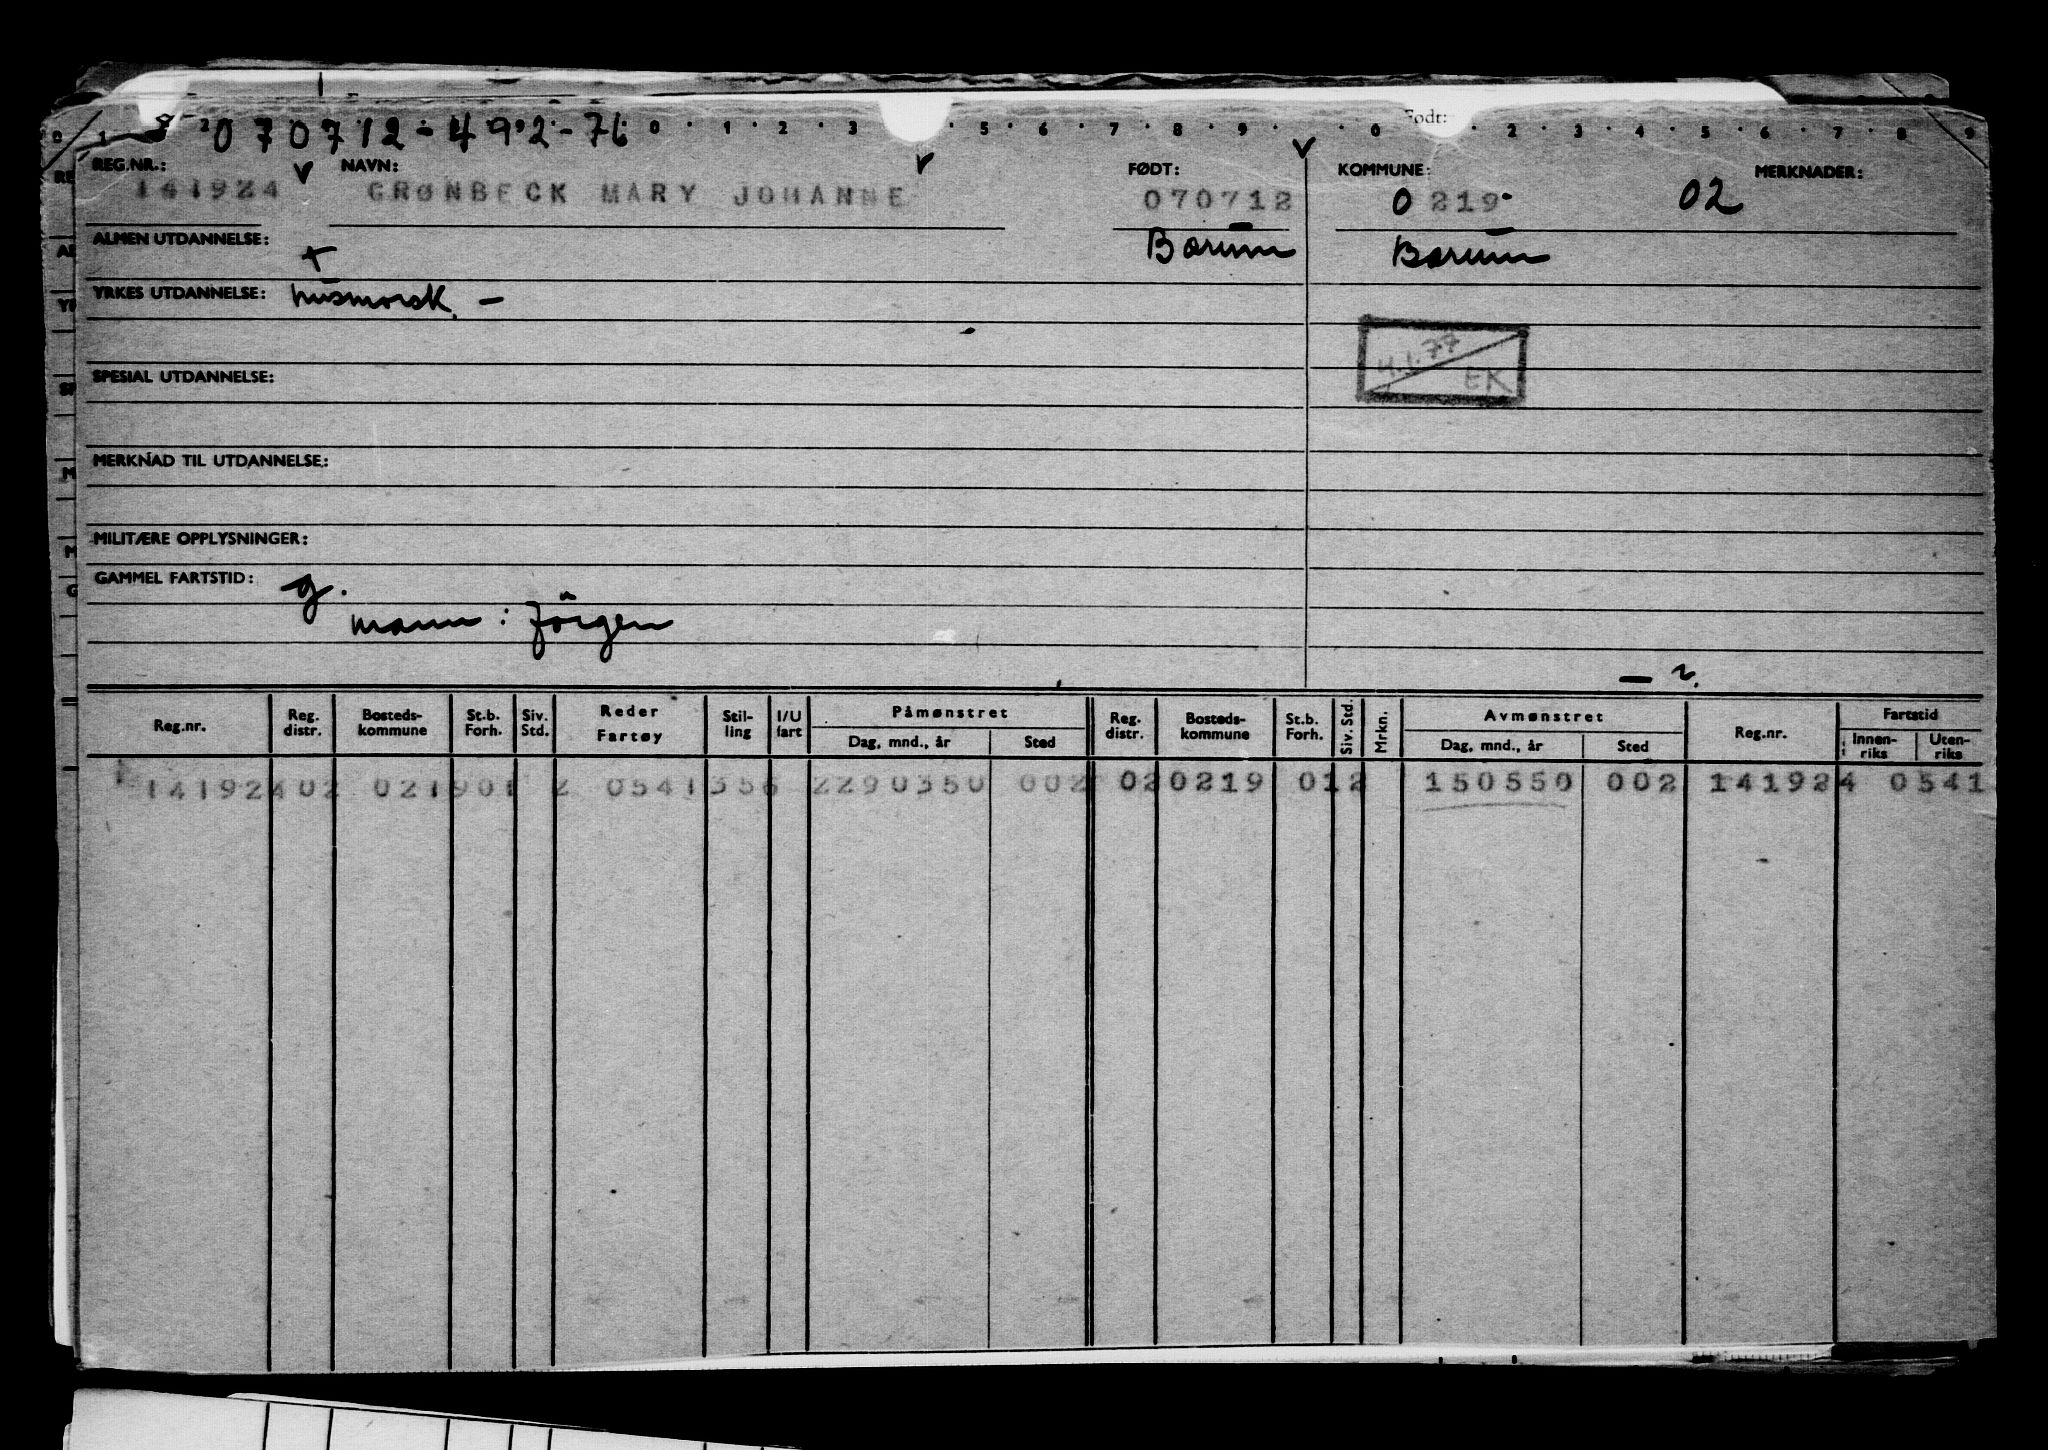 Født:
070712-492-76
0 1 2 3 5 6 7 8 9 0 2 3 4 5 6 7 8 9
REG.NR.: NAVN: FØDT: KOMMUNE: MERKNADER:
141924 GRØNBECK MARY JOHANNE 070712 0219 02
ALMEN UTDANNELSE: + Bærum Bærum
YRKES UTDANNELSE: husmorsk. -
4.1.77
EK
SPESIAL UTDANNELSE:
MERKNAD TIL UTDANNELSE:
MILITÆRE OPPLYSNINGER:
GAMMEL FARTSTID: g.
mann: Jörgen
Reg.nr. Reg. distr. Bosteds-kommune St.b. Forh. Siv. Std. Reder Fartøy Stil-ling I/U fart Påmønstret Dag, mnd., år Sted Reg. distr. Bosteds-kommune St.b. Forh. Siv. Std. Mrkn. Avmønstret Dag, mnd., år Sted Reg.nr. Fartstid Innen-riks Uten-riks
141924 02 0219 01 2 0541 356 2 290350 002 02 0219 01 2 150550 002 141924 0541